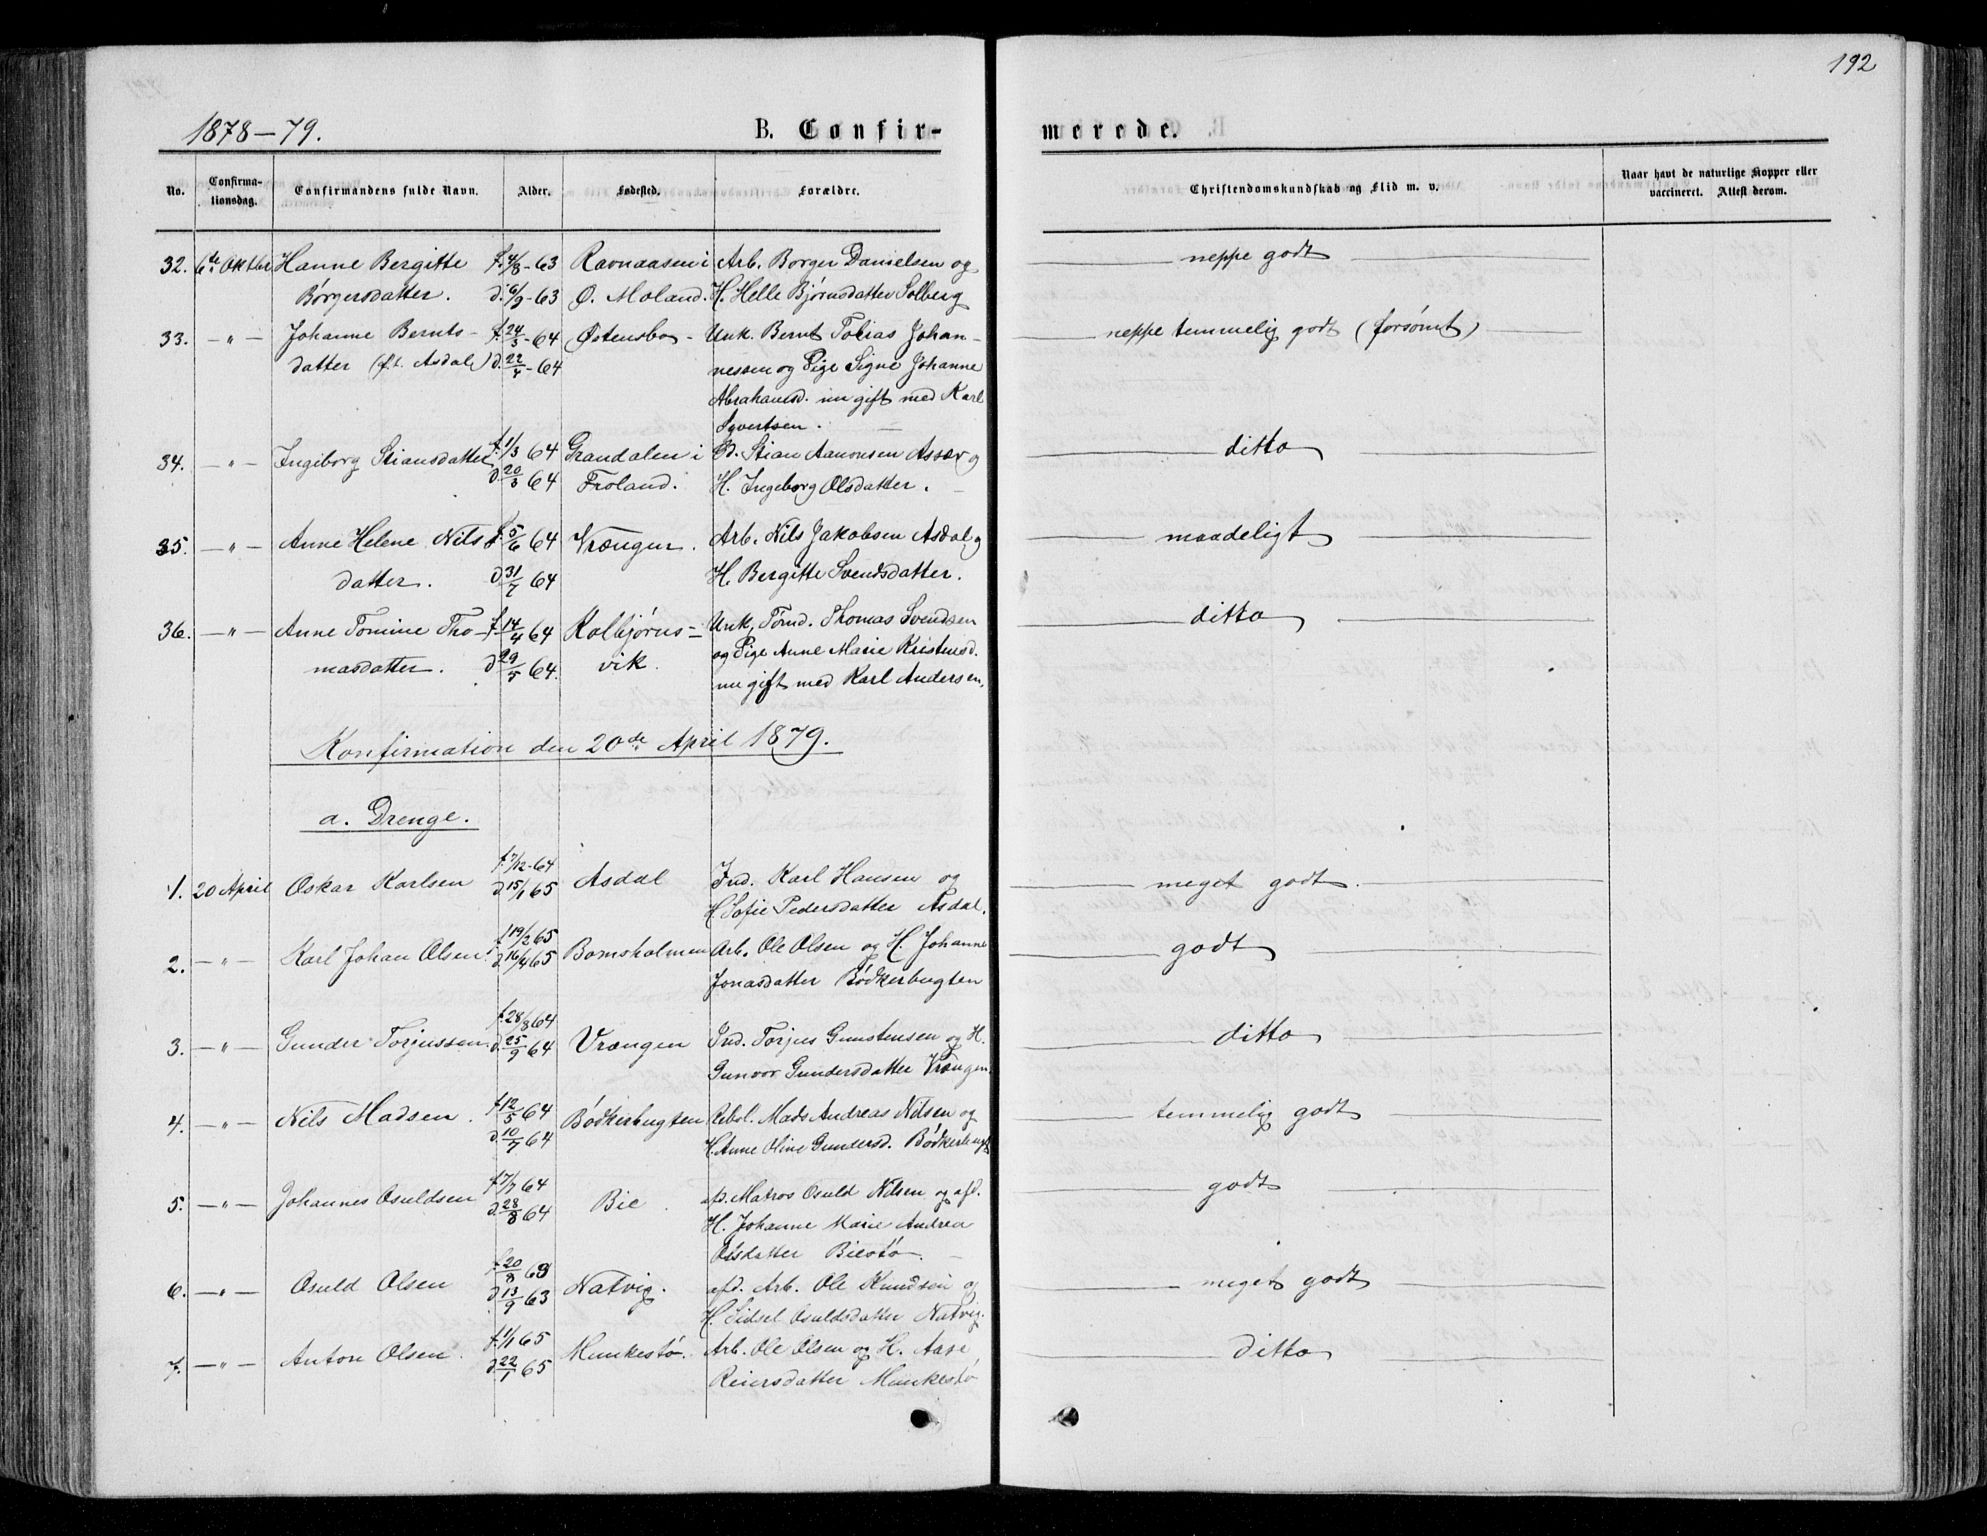 192
1878–79.
B. Confir-
merede.
No. Confirma-tionsdag. Confirmandens fulde Navn. Alder. Fødested. Forældre. Christendomskundskab og Flid m. v. Naar havt de naturlige Kopper eller vaccineret. Attest derom.
32. 6te Oktbr Hanne Bergitte f. 4/8-63 Ravnaasen i Arb. Børger Danielsen og neppe godt
Børgersdatter. d. 6/9-63 Ø. Moland. H. Helle Bjørnsdatter Solberg
33. —"— Johanne Bernts- f. 24/3-64 Østensbo- Unk. Bernt Tobias Johan- neppe temmelig godt (forsømt)
datter (f.t. Asdal) d. 22/4-64 nessen og Pige Signe Johanne
Abrahamsd. nu gift med Karl
Syvertsen.
34. —"— Ingeborg Stiansdatter f. 1/3 64 Grandalen i Stian Aanonsen Asdal og ditto
d. 20/3 64 Froland. H. Ingeborg Olsdatter.
35. —"— Anne Helene Nils f. 5/6 64 Vrængen. Arb. Nils Jakobsen Asdal og maadeligt
datter. d. 31/7 64 H. Bergitte Svendsdatter.
36. —"— Anne Tomine Tho- f. 14/4 64 Kolbjørns- Unk. Tømd. Thomas Svendsen ditto
masdatter. d. 29/5 64. vik. og Pige Anne Marie Kristensd.
nu gift med Karl Andersen.
Konfirmation den 20de April 1879.
a. Drenge.
1. 20 April Oskar Karlsen f. 7/12-64 Asdal Ind. Karl Hansen og meget godt
d. 15/1 65 H. Sofie Pedersdatter Asdal.
2. —"— Karl Johan Olsen f. 19/2 65 Bomsholmen Arb. Ole Olsen og H. Johanne godt
d. 16/4 65 Jonasdatter Bødkerbugten
3. —"— Gunder Torjussen f. 28/8 64 Vrængen Ind. Torjus Gunstensen og H. ditto
d. 25/9 64 Gunvor Gundersdatter Vrængen.
4. —"— Nils Madsen. f. 12/5 64 Bødkerbugten Rebsl. Mads Andreas Nilsen og temmelig godt
d. 10/7 64 H. Anne Oline Gundersd. Bødkerbugt
5. —"— Johannes Osuldsen f. 7/7 64 Bie. Matros Osuld Nilsen og afd. godt
d. 28/8 64 H. Johanne Marie Andrea
Olsdatter Biestø.
6. —"— Osuld Olsen f. 20/8 63 Natvig. afd. Arb. Ole Knudsen og meget godt
d. 13/9 63 H. Sidsel Osuldsdatter Natvig.
7. —"— Anton Olsen. f. 1/1 65 Munkestø. Arb. Ole Olsen og H. Aase ditto
d. 22/1 65 Reiersdatter Munkestø